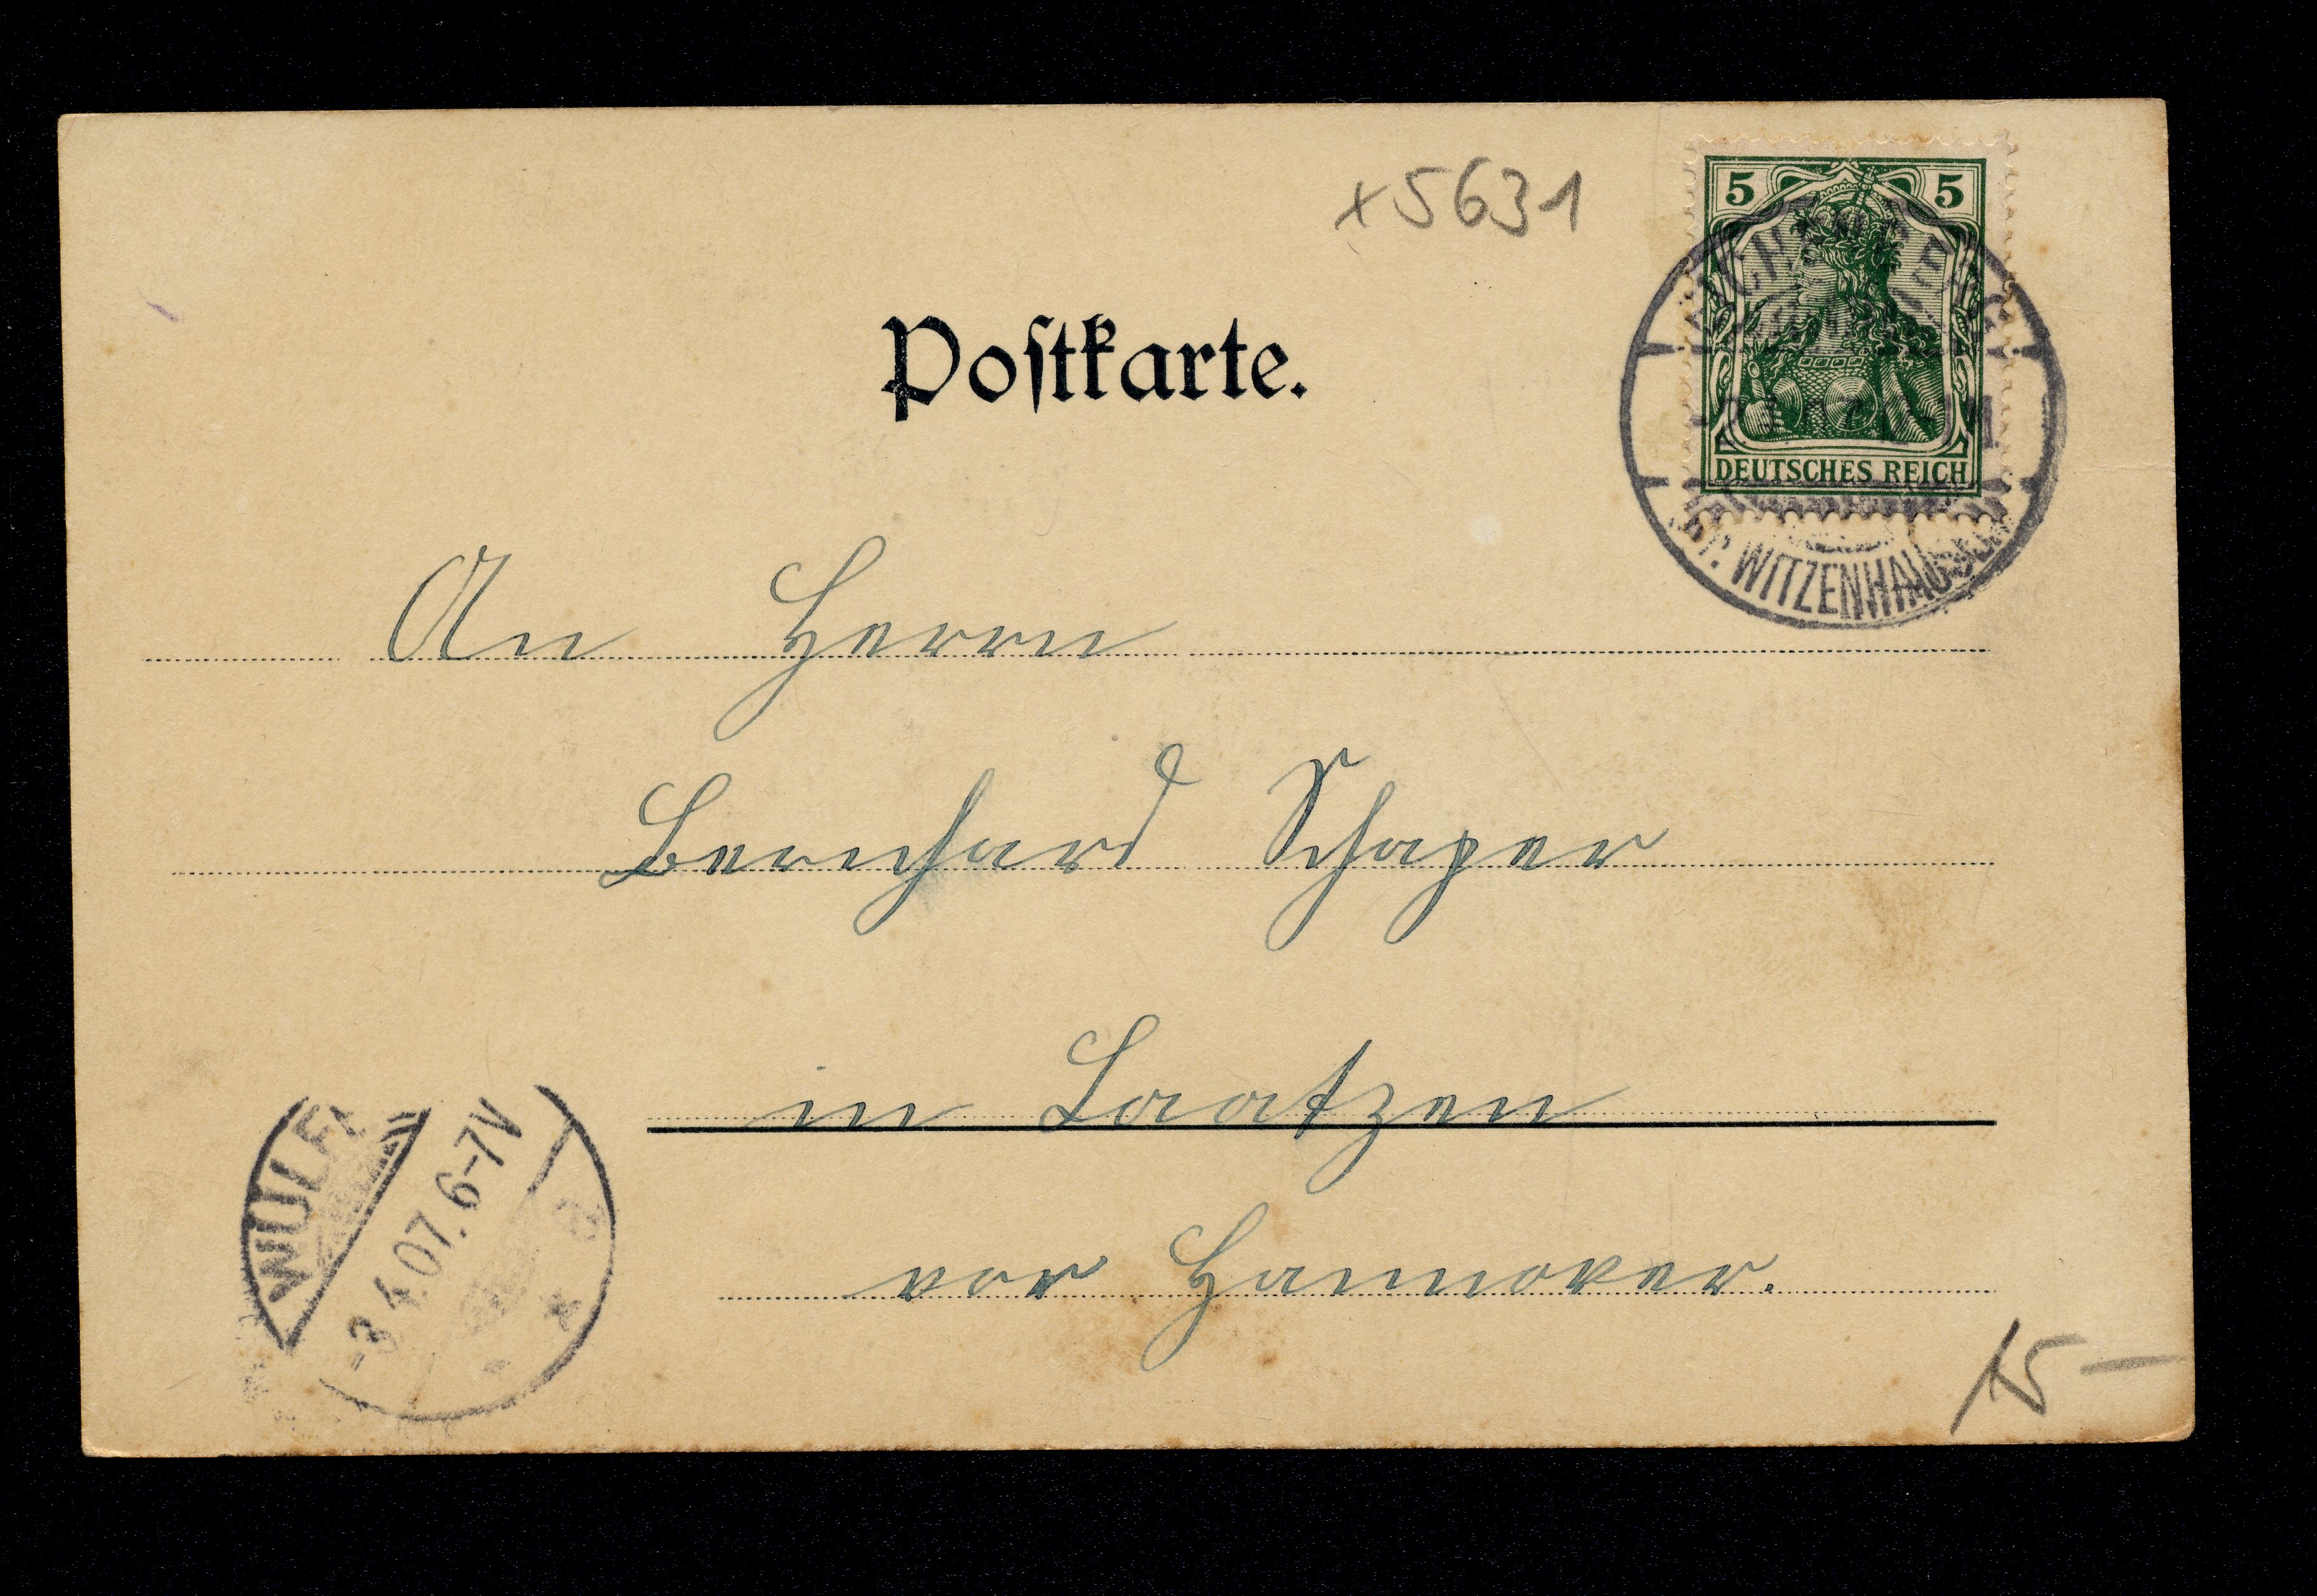 x 5631
5 5
DEUTSCHES REICH
Kr. WITZENHAUSEN
Postkarte.
An Herrn
Bernhard Schaper
in Laatzen
vor Hannover.
WÜLF
-3.4.07. 6-7V
a
15 –